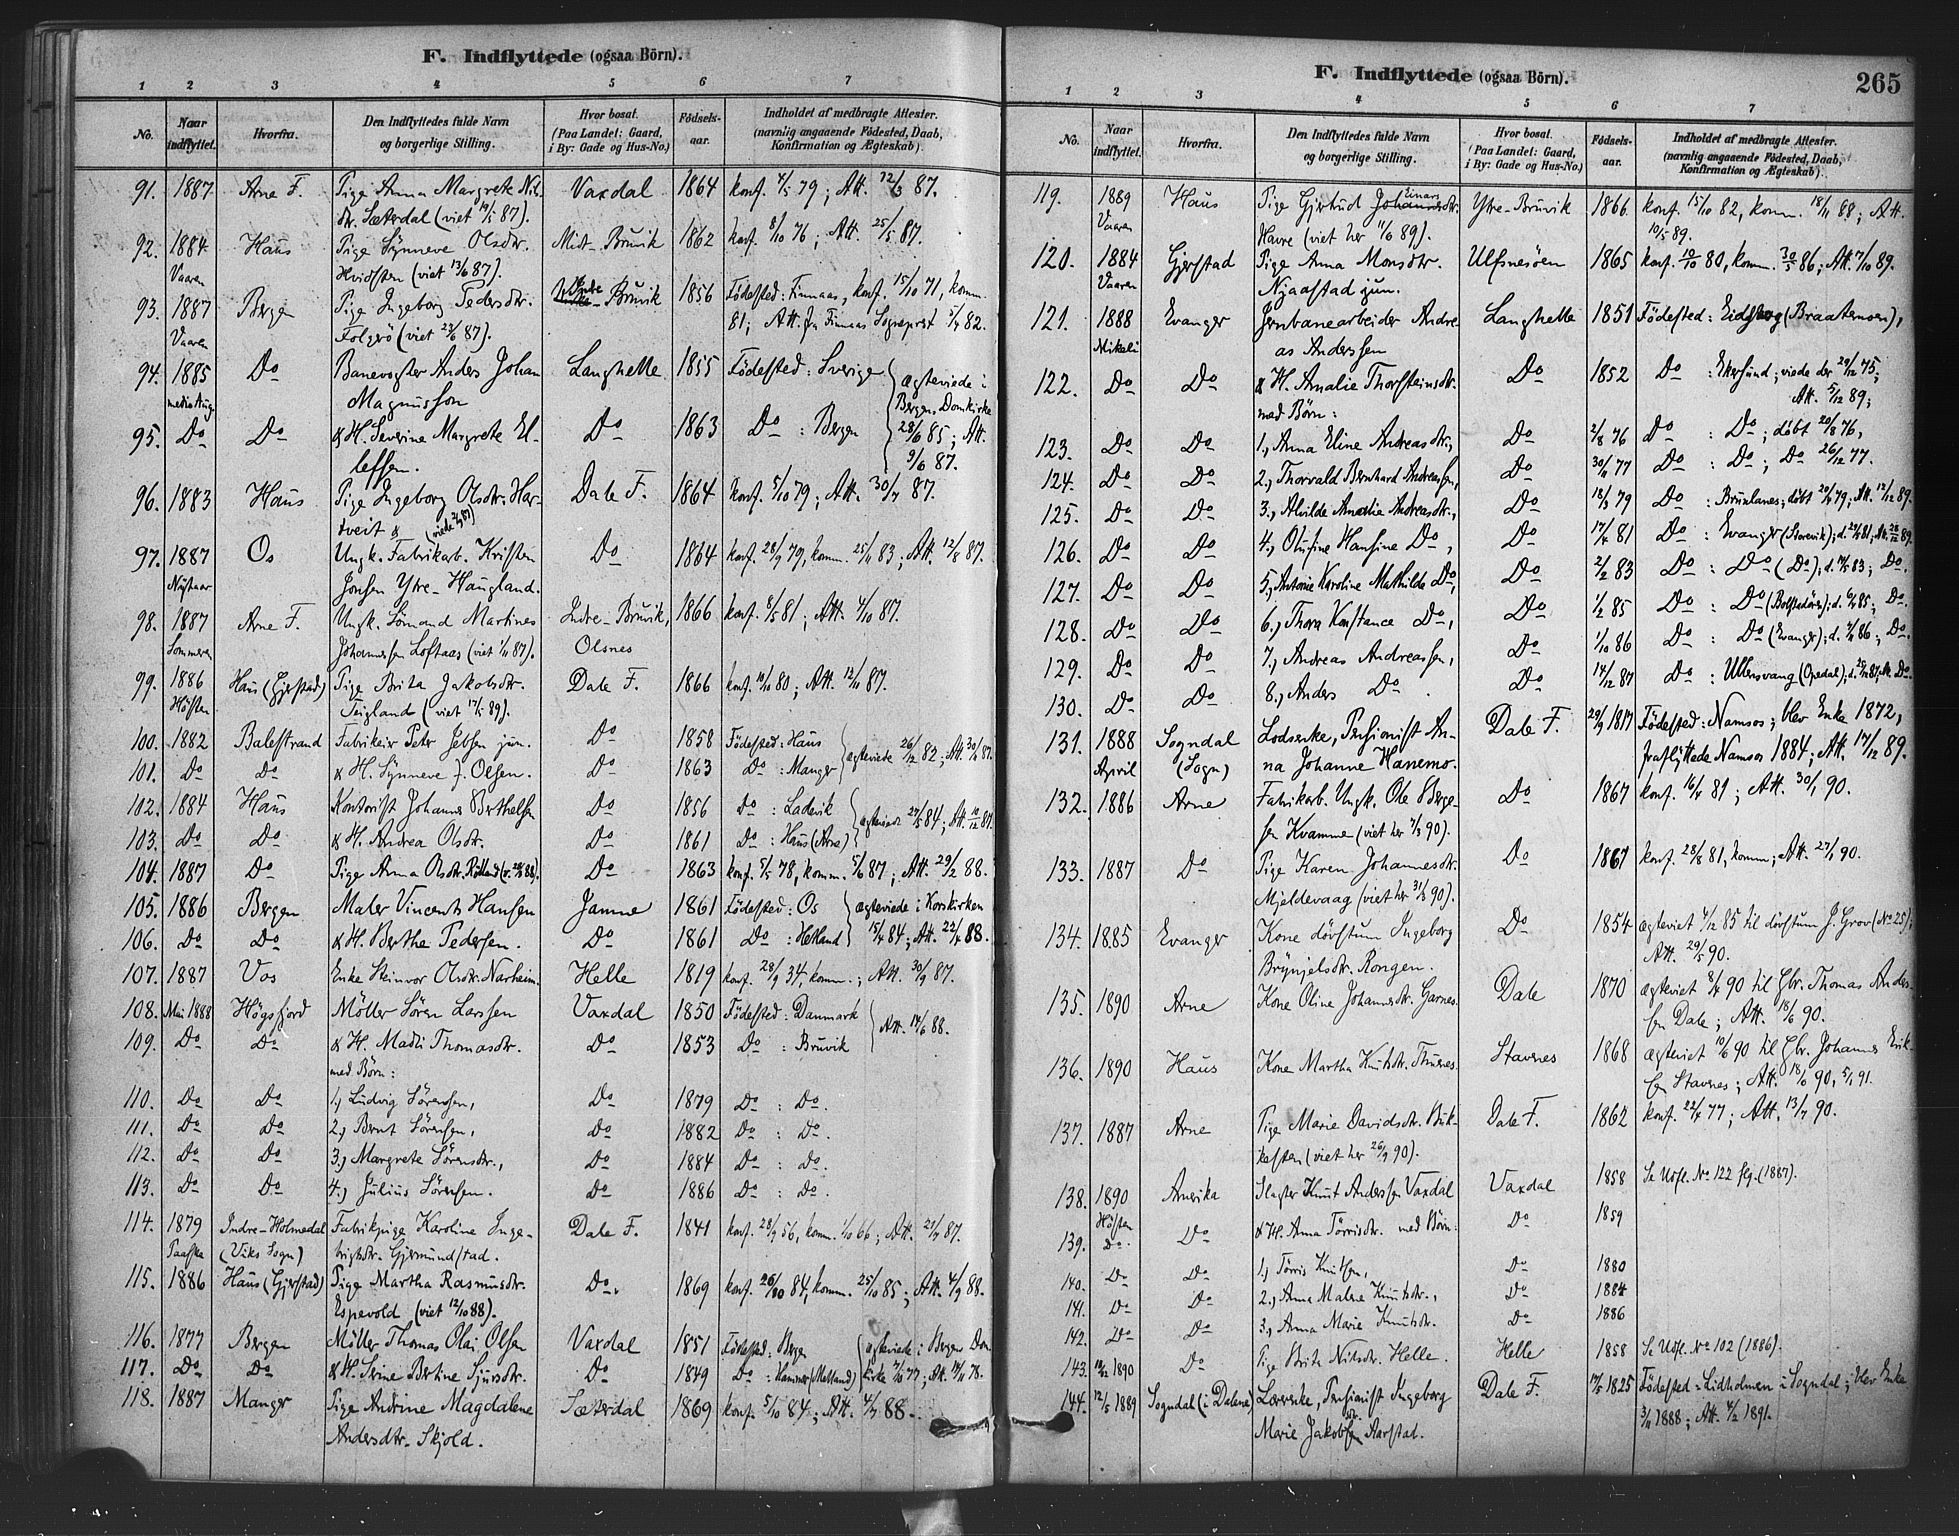 F. Indflyttede (ogsaa Börn).
1 2 3 4 5 6 7
No. Naar indflyttet. Hvorfra. Den Indflyttedes fulde Navn og borgerlige Stilling. Hvor bosat. (Paa Landet: Gaard, i By: Gade og Hus-No.) Födsels-aar. Indholdet af medbragte Attester. (navnlig angaaende Födested, Daab, Konfirmation og Ægteskab).
91. 1887 Arne F. Pige Anna Margrete Nils- Vaxdal 1864 konf. 4/5 79; Att. 12/3 87.
dtr. Sæterdal (viet 19/5 87).
92. 1884 Haus Pige Synneve Olsdtr. Midt-Bruvik 1862 konf. 8/10 76; Att. 25/5 87.
Vaaren Hvidsten (viet 13/6 87).
93. 1887 Bergen Pige Ingeborg Pedersdtr. Indre-Bruvik 1856 Födested: Finnaas, konf. 15/10 71, komm.
Vaaren Folgerö (viet 23/6 87). 81; Att. fra Finnaas Sognepræst 5/7 82.
94. 1885 Do Banevogter Anders Johan Langhelle 1855 Födested: Sverige ægteviede i
medio Aug. Magnusson Bergens Domkirke
95. Do Do & H. Severine Margrete El- Do 1863 Do : Bergen 28/6 85; Att.
lefsen. 9/6 87.
96. 1883 Haus Pige Ingeborg Olsdtr. Har- Dale F. 1864 konf. 5/10 79; Att. 30/7 87.
tveit & (viede 2/9 87)
97. 1887 Os Ungk. Fabrikarb. Kristen Do 1864 konf. 28/9 79, komm. 25/11 83; Att. 12/8 87.
Nytaar Jonsen Ytre-Haugland.
98. 1887 Arne F. Ungk. Sömand Martines Indre-Bruvik, 1866 konf. 8/5 81; Att. 4/10 87.
Sommeren Johannessen Loftaas (viet 1/11 87). Olsnes
99. 1886 Haus (Gjerstad) Pige Brita Jakobsdtr. Dale F. 1866 konf. 10/10 80; Att. 12/11 87.
Hösten Teigland (viet 17/5 89).
100. 1882 Balestrand Fabrikeier Peter Jebsen jun. Do 1858 Födested: Haus ægteviede 26/12 82; Att. 30/11 87.
101. Do Do & H. Synneve J. Olsen. Do 1863 Do : Manger
102. 1884 Haus Kontorist Johannes Berthelsen Do 1856 Do : Ladevik ægteviede 27/5 84, Att. 10/12 87.
103. Do Do & H. Andrea Olsdtr. Do 1861 Do : Haus (Arne)
104. 1887 Do Pige Anna Olsdtr. Rötland (v. 28/3 88). Do 1863 konf. 5/5 78, komm. 5/6 87; Att. 29/2 88.
105. 1886 Bergen Maler Vincents Hansen Jamne 1861 Födested: Os ægteviede i Korskirken
106. Do Do & H. Berthe Pedersen. Do 1861 Do : Hetland 15/4 84; Att. 22/4 88.
107. 1887 Vos Enke Steinvor Olsdtr. Narheim. Helle 1819 konf. 28/9 34, komm.; Att. 30/9 87.
108. Mai 1888 Högsfjord Möller Sören Larssen Vaxdal 1850 Födested: Danmark Att. 14/6 88.
109. Do Do & H. Madli Thomasdtr. Do 1853 Do : Bruvik
med Börn:
110. Do Do 1., Ludvig Sörensen, Do 1879 Do : Do.
111. Do Do 2., Bernt Sörensen, Do 1882 Do : Do.
112. Do Do 3., Margrete Sörensdtr., Do 1884 Do : Do.
113. Do Do 4., Julius Sörensen. Do 1886 Do : Do.
114. 1879 Indre-Holmedal Fabrikpige Karoline Inge- Dale F. 1841 konf. 28/9 56, komm. 1/10 66; Att. 21/7 87.
Paaske (Viks Sogn) brigtsdtr. Gjermundstad.
115. 1886 Haus (Gjerstad) Pige Martha Rasmusdtr. Do. 1869 konf. 26/10 84, komm. 25/10 85; Att. 4/9 88.
Espevold (viet 12/10 88).
116. 1877 Bergen Möller Thomas Olai Olsen Vaxdal 1851 Födested: Bergen ægteviede i Bergens Dom-
117. Do Do & H. Serine Bertine Sjursdtr. Do 1849 Do : Hammer (Matland) kirke 7/10 77; Att. 14/11 78.
118. 1887 Manger Pige Andrine Magdalene Sæterdal 1869 konf. 5/10 84; Att. 4/7 88.
Andersdtr. Skjold.
F. Indflyttede (ogsaa Börn). 265
1 2 3 4 5 6 7
No. Naar indflyttet. Hvorfra. Den Indflyttedes fulde Navn og borgerlige Stilling. Hvor bosat. (Paa Landet: Gaard, i By: Gade og Hus-No.) Födsels-aar. Indholdet af medbragte Attester. (navnlig angaaende Födested, Daab, Konfirmation og Ægteskab).
119. 1889 Haus Pige Gjertrud Johannesdtr. Einars Ytre-Bruvik 1866 konf. 15/10 82, komm. 18/11 88; Att.
Vaaren Havre (viet her 11/6 89). 10/5 89.
120. 1884 Gjerstad Pige Anna Monsdtr. Ulfsnesöen 1865 konf. 10/10 80, komm. 30/5 86; Att. 7/10 89.
Vaaren Njaastad jun.
121. 1888 Evanger Jernbanearbeider Andre- Langhelle 1851 Födested: Eidsberg (Braatemoen),
Mikeli as Anderssen
122. Do Do & H. Amalie Thorsteinsdtr. Do 1852 Do : Ekersund; viede der 29/12 75;
med Börn: Att. 5/12 89;
123. Do Do 1., Anna Eline Andreasdtr., Do 2/8 76 Do : Do; döbt 20/8 76,
124. Do Do 2., Thorvald Bernhard Andreassen, Do 30/11 77 Do : Do; Do 26/12 77.
125. Do Do 3., Alvilde Amalie Andreasdtr., Do 18/3 79 Do : Brunlanes; döbt 20/4 79; Att. 12/12 89.
126. Do Do 4., Olufine Hansine Do, Do 17/4 81 Do : Evanger (Storevik); d. 24/4 81; Att. 28/12 89.
127. Do Do 5., Antonie Karoline Mathilde Do, Do 2/2 83 Do : Do (Do); d. 83; Do.
128. Do Do 6., Thora Konstance Do, Do 1/2 85 Do : Do (Bolstadören); d. 6/4 85; Do.
129. Do Do 7., Andreas Andreassen, Do 1/10 86 Do : Do (Evanger); d. 86; Do.
130. Do Do 8., Anders Do. Do 14/12 87 Do : Ullensvang (Opedal); d. 25/12 87; Att. Do.
131. 1888 Sogndal Lodsenke, Pensionist An- Dale F. 29/9 1817 Födested: Namsos; blev Enke 1872,
April (Sogn) na Johanne Hanemo. fraflyttede Namsos 1884; Att. 17/12 89.
132. 1886 Arne Fabrikarb. Ungk. Ole Berge- Do 1867 konf. 16/4 81; Att. 30/1 90.
sen Kvamme (viet her 7/3 90).
133. 1887 Do Pige Karen Johannesdtr. Do 1867 konf. 28/8 81, komm; Att. 27/1 90.
Mjeldevaag (viet her 31/3 90).
134. 1885 Evanger Kone dövstum Ingeborg Do 1854 ægteviet 4/12 85 til dövstum J. Grov (No 25);
Brynjelsdtr. Rongen. Att. 29/5 90.
135. 1890 Arne Kone Oline Johannesdtr. Garnes Dale 1870 ægteviet 8/4 90 til Gbr. Thomas Anders-
sen Dale; Att. 18/6 90.
136. 1890 Haus Kone Martha Knutsdtr. Thunes Stavnes 1868 ægteviet 10/6 90 til Gbr. Johannes Erik-
sen Stavnes; Att. 18/6 90, 5/1 91.
137. 1887 Arne Pige Marie Davidsdtr. Buk- Dale F. 1862 konf. 22/4 77; Att. 13/7 90.
kesten (viet her 26/9 90).
138. 1890 Amerika Slagter Knut Andersen Vaxdal Vaxdal 1858 Se Udfl. No 122 flg. (1887).
Hösten
139. Do. Do & H. Anna Törrisdtr. med Börn: Do 1859
140. Do Do 1., Törris Knutsen, Do 1880
141. Do Do 2., Anna Malene Knutsdtr., Do 1884
142. Do Do 3., Anna Marie Knutsdtr. Do 1886
143. 12/12 1890 Do Pige Brita Nilsdtr. Helle. Helle 1858 Se Udfl. No 102 (1886).
144. 12/5 1889 Sogndal (i Dalene) Pensionist Ingeborg Dale F. 17/5 1825 Födested: Lidholmen i Sogndal; blev Enke
Marie Jakobsdtr. Aarstad. 3/11 1888; Att. 4/2 1891.